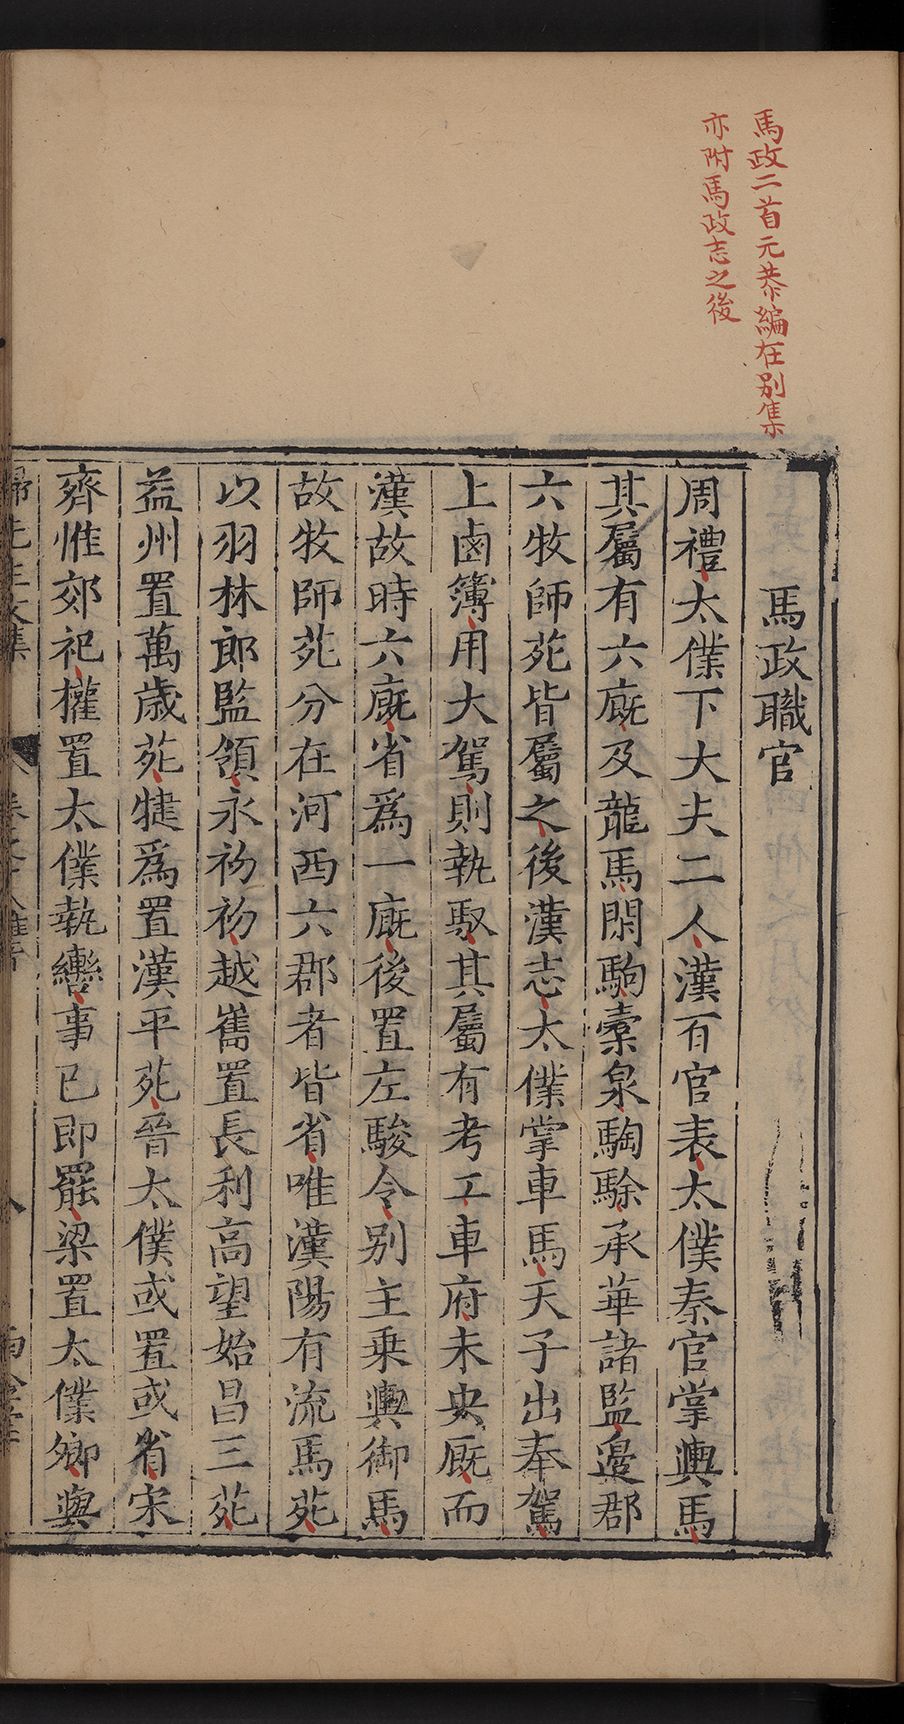 馬政二首元恭編在別集
亦附馬政志之後
馬政職官
周禮太僕下大夫二人漢百官表太僕秦官掌輿馬
其屬有六廐及龍馬閑駒橐泉騊駼承華諸監邊郡
六牧師苑皆屬之後漢志太僕掌車馬天子出奉駕
上鹵簿用大駕則執馭其屬有考工車府未央厩而
漢故時六廐省爲一廐後置左駿令别主乗輿御馬
故牧師苑分在河西六郡者皆省唯漢陽有流馬苑
以羽林郎監領永初初越嶲置長利高望始昌三苑
益州置萬歲苑犍爲置漢平苑晉太僕或置或省宋
齊惟郊祀權置太僕執轡事已即罷梁置太僕卿輿
歸先生文集